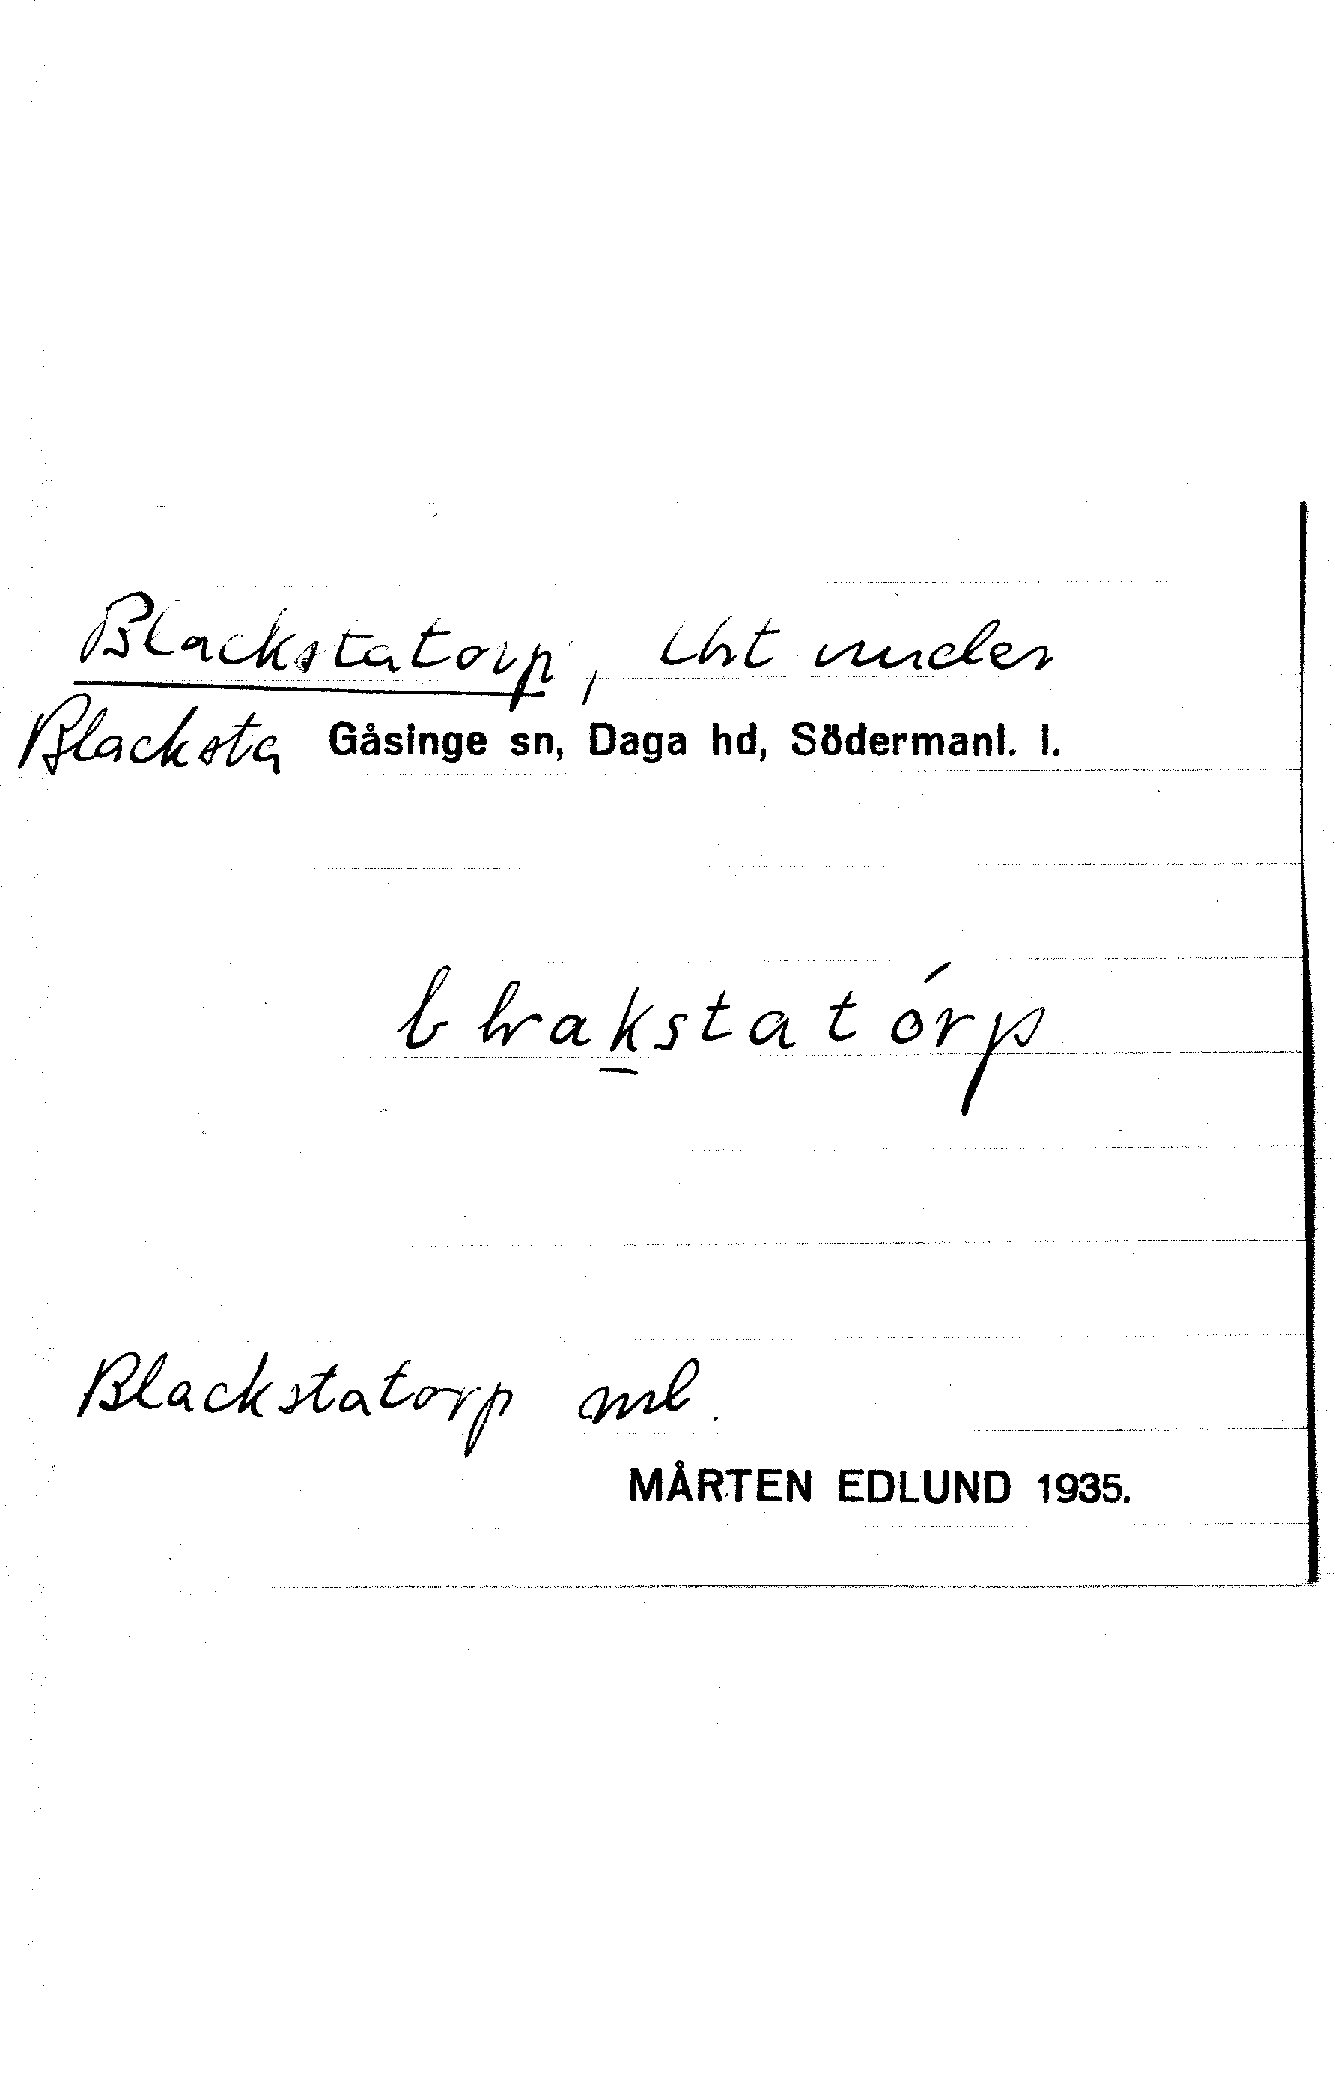 Blackstatorp, lht under
Blacksta Gåsinge sn, Daga hd, Södermanl. l.
blakstatórp
Blackstatorp ml.
MÅRTEN EDLUND 1935.